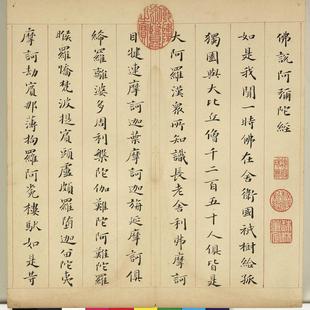 佛說阿彌陀經
如是我聞一時佛在舍衛國祇樹給孤
獨園與大比丘僧千二百五十人俱皆是
大阿羅漢眾所知識長老舍利弗摩訶
目犍連摩訶迦葉摩訶迦旃延摩訶俱
絺羅離婆多周利槃陀伽難陀阿難陀羅
睺羅憍梵波提賓頭盧頗羅墮迦留陀夷
摩訶劫賓那薄拘羅阿㝹樓馱如是等